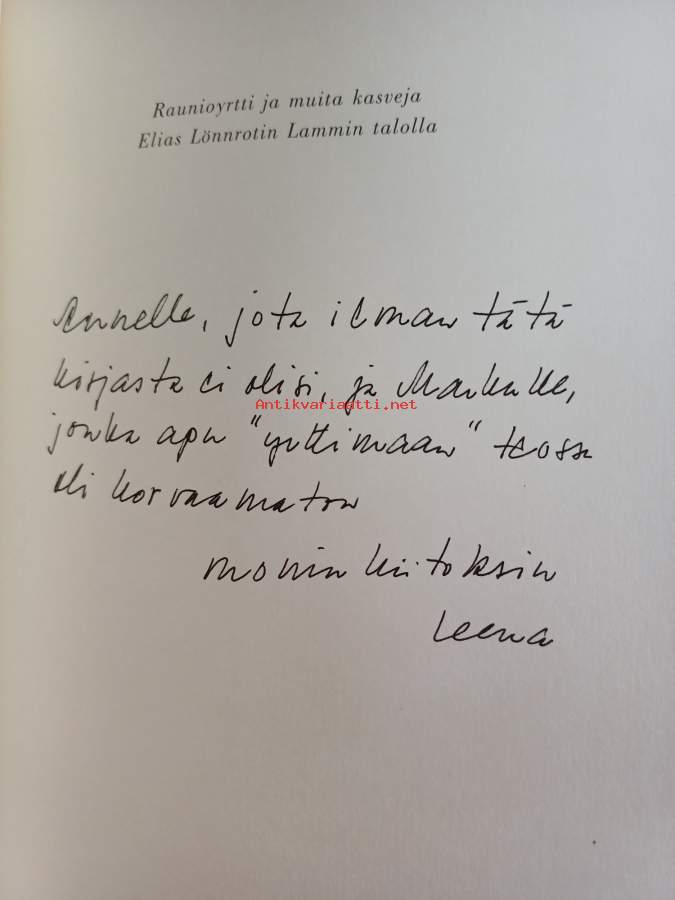 Raunioyrtti ja muita kasveja
Elias Lönnrotin Lammin talolla
Annelle, jota ilman tätä
kirjasta ei olisi, ja Markulle,
Antikvariaatti.net
jonka apu "yrttimaan" teossa
oli korvaamaton
monin kiitoksin
Leena